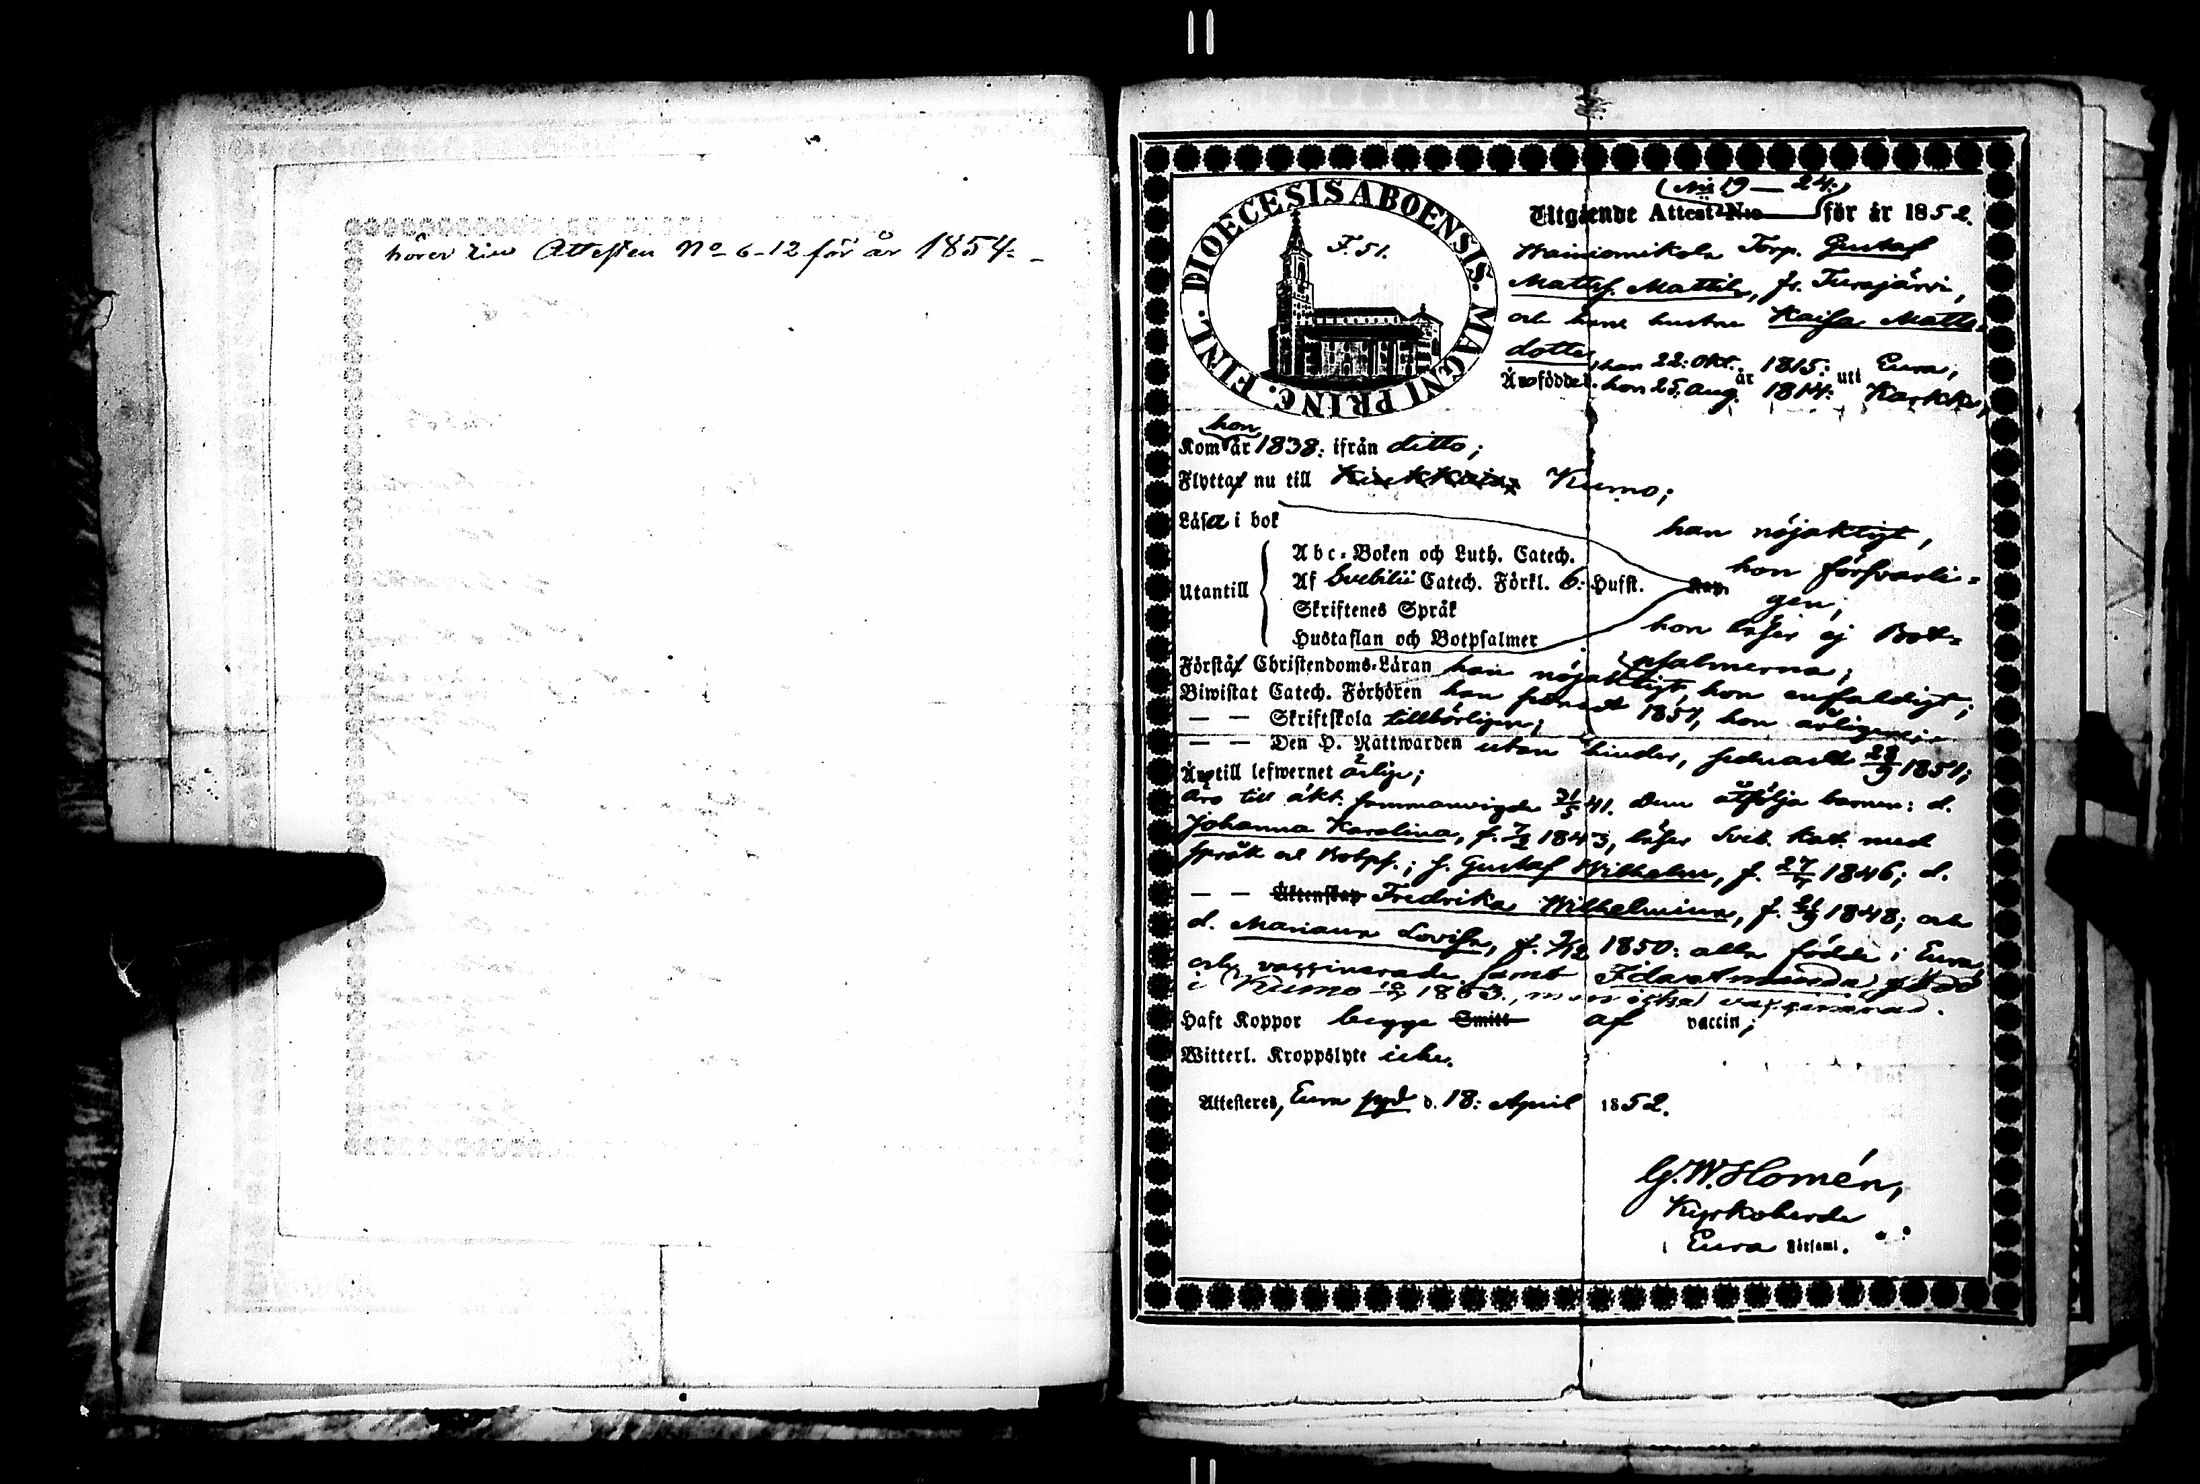 hörer till Attesten No 6-12 för år 1854.
DIOECESIS ABOENSIS. MAGNI PRINC. FINL.
F. 51.
(No 19 — 24.)
Utgående Attest No för år 1852.
Wainiomikola Torp. Gustaf
Matts. Mattila, fr. Turajärvi,
och hans hustru Kaisa Matts-
dotter,
han 22: Okt. 1815: Eura,
Äro födde år uti
hon 25. Aug. 1814: Karkku,
hon
Kom år 1838: ifrån ditto;
Flytta nu till Kumo;
Läsa i bok han nöjaktigt,
Abc-Boken och Luth. Catech.
hon försvarli-
Utantill Af Svebilii Catech. Förkl. 6: Hufst.
gen;
Skriftenes Språk
hon läser ej Bot-
Hustaflan och Botpsalmer
psalmerna;
Förstå Christendoms-Läran han nöjaktigt, hon enfaldigt;
Biwistat Catech. Förhören han senast 1851, hon årligen;
— — Skriftskola tillbörligen;
— — Den H. Nattwarden utan hinder, senast 28/9 1851;
Äro till lefwernet ärlige;
Äro till äkt. sammanvigde 21/5 41. Dem åtfölja barnen: d.
Johanna Karolina, f. 7/2 1843, läser Sveb. kat. med
språk och Botps.; s. Gustaf Wilhelm, f. 27/7 1846; d.
— — Äktenskap Fredrika Wilhelmina, f. 21/9 1848; och
d. Mariana Lovisa, f. 9/12 1850: alla födde i Eura
och vaccinerade, samt Ida Amanda, född
i Kumo 10/7 1853, men icke vaccinerad.
Haft Koppor begge Smitt af vaccin;
Witterl. Kroppslyte icke.
Attesteres, Eura pgd d. 18: April 1852.
G. W. Homén,
Kyrkoherde
i Eura Församl.